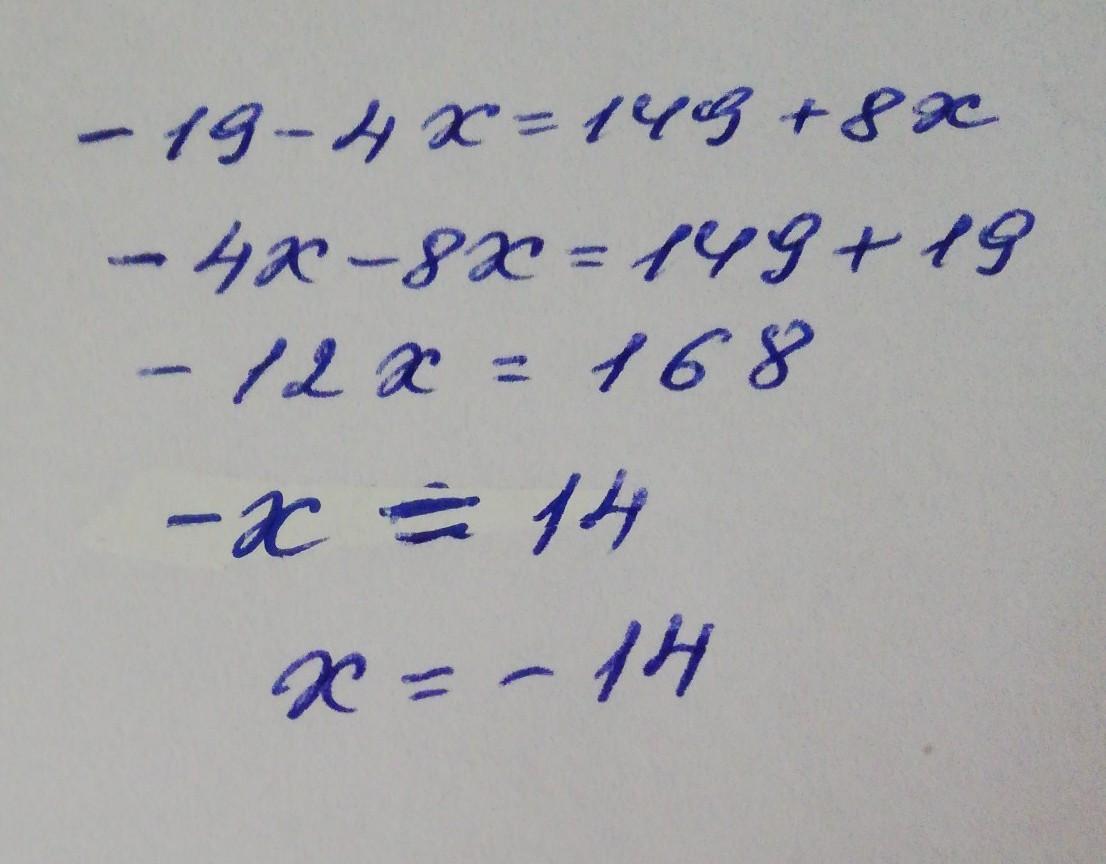 -19-4x=149+8x
-4x-8x=149+19
-12x=168
-x=14
x=-14